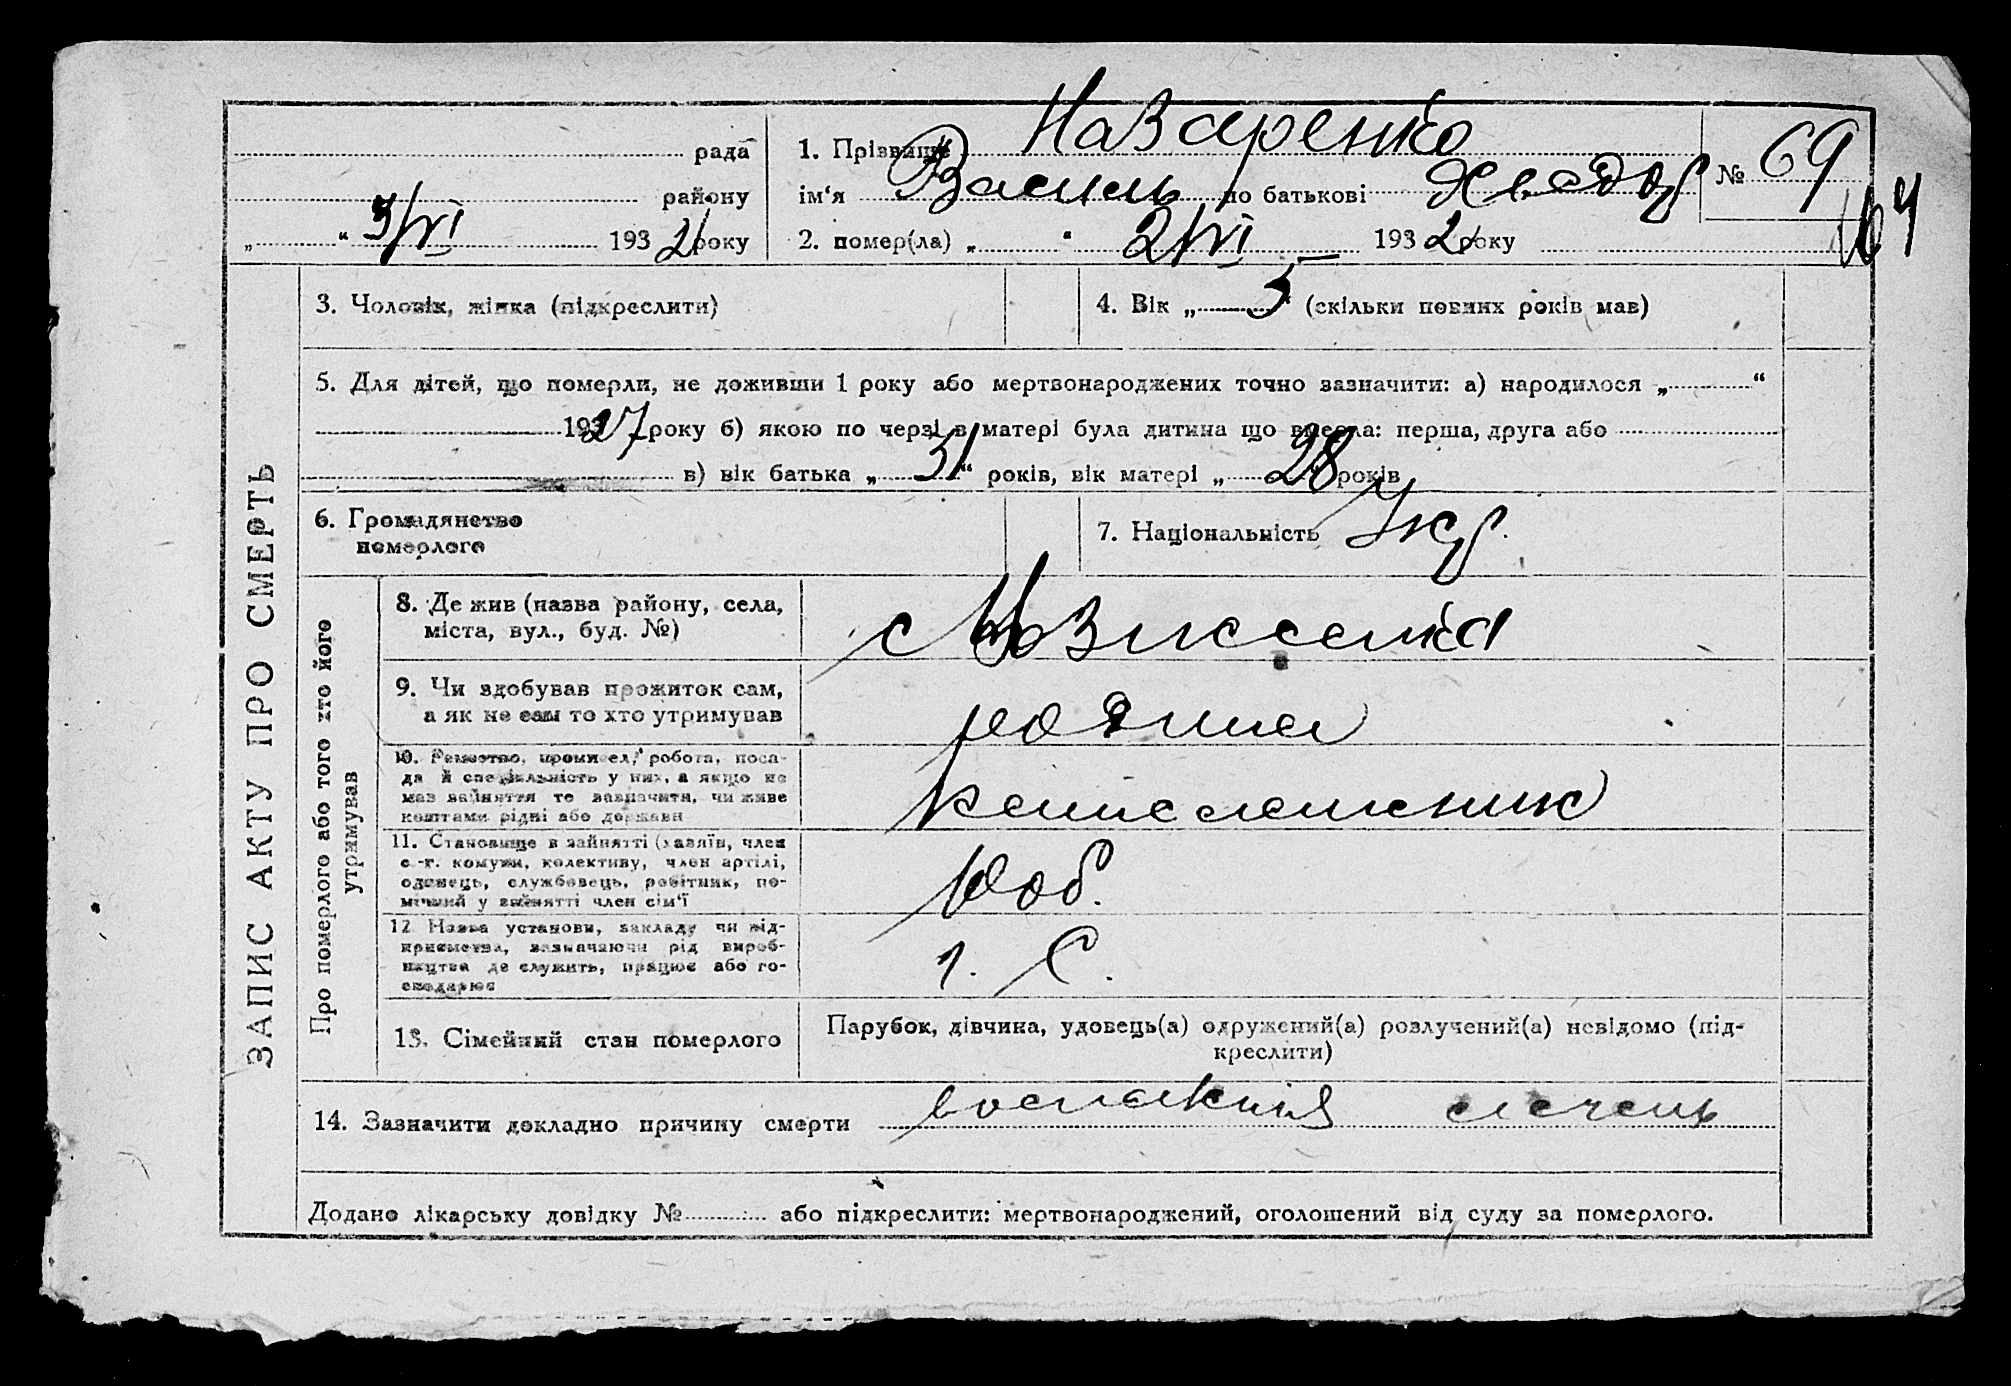 ЗАПИС АКТУ ПРО СМЕРТЬ
рада
району
„ “ 3/VI 1932 року
1. Прізвище Назаренко
ім‘я Василь по батькові
№ 69
2. помер(ла) „ “ 2/VI 1932 року
3. Чоловік, жінка (підкреслити)
4. Вік „ 5 “ (скільки повних років мав)
5. Для дітей, що померли, не доживши 1 року або мертвонароджених точно зазначити: а) народилося „ “
1927 року б) якою по черзі в матері була дитина що вмерла: перша, друга або
в) вік батька „ 31 “ років, вік матері „ 28 років
6. Громадянство
померлого
7. Національність Укр.
Про померлого або того хто його
утримував
8. Де жив (назва району, села,
міста, вул., буд. №)
с
9. Чи здобував прожиток сам,
а як не сам то хто утримував
родина
10. Ремество, промисел, робота, поса-
да й спеціяльність у них, а якщо не
мав зайняття то зазначити, чи живе
коштами рідні або держави
11. Становище в зайнятті (хазяїн, член
с.-г. комуни, колективу, член артілі,
одинець, службовець, робітник, по-
мічний у зайнятті член сім‘ї
Роб.
12. Назва установи, закладу чи під-
приємства, зазначаючи рід вироб-
ництва де служить, працює або го-
сподарює
13. Сімейний стан померлого
Парубок, дівчина, удовець(а) одружений(а) розлучений(а) невідомо (під-
креслити)
14. Зазначити докладно причину смерти
Додано лікарську довідку № або підкреслити: мертвонароджений, оголошений від суду за померлого.